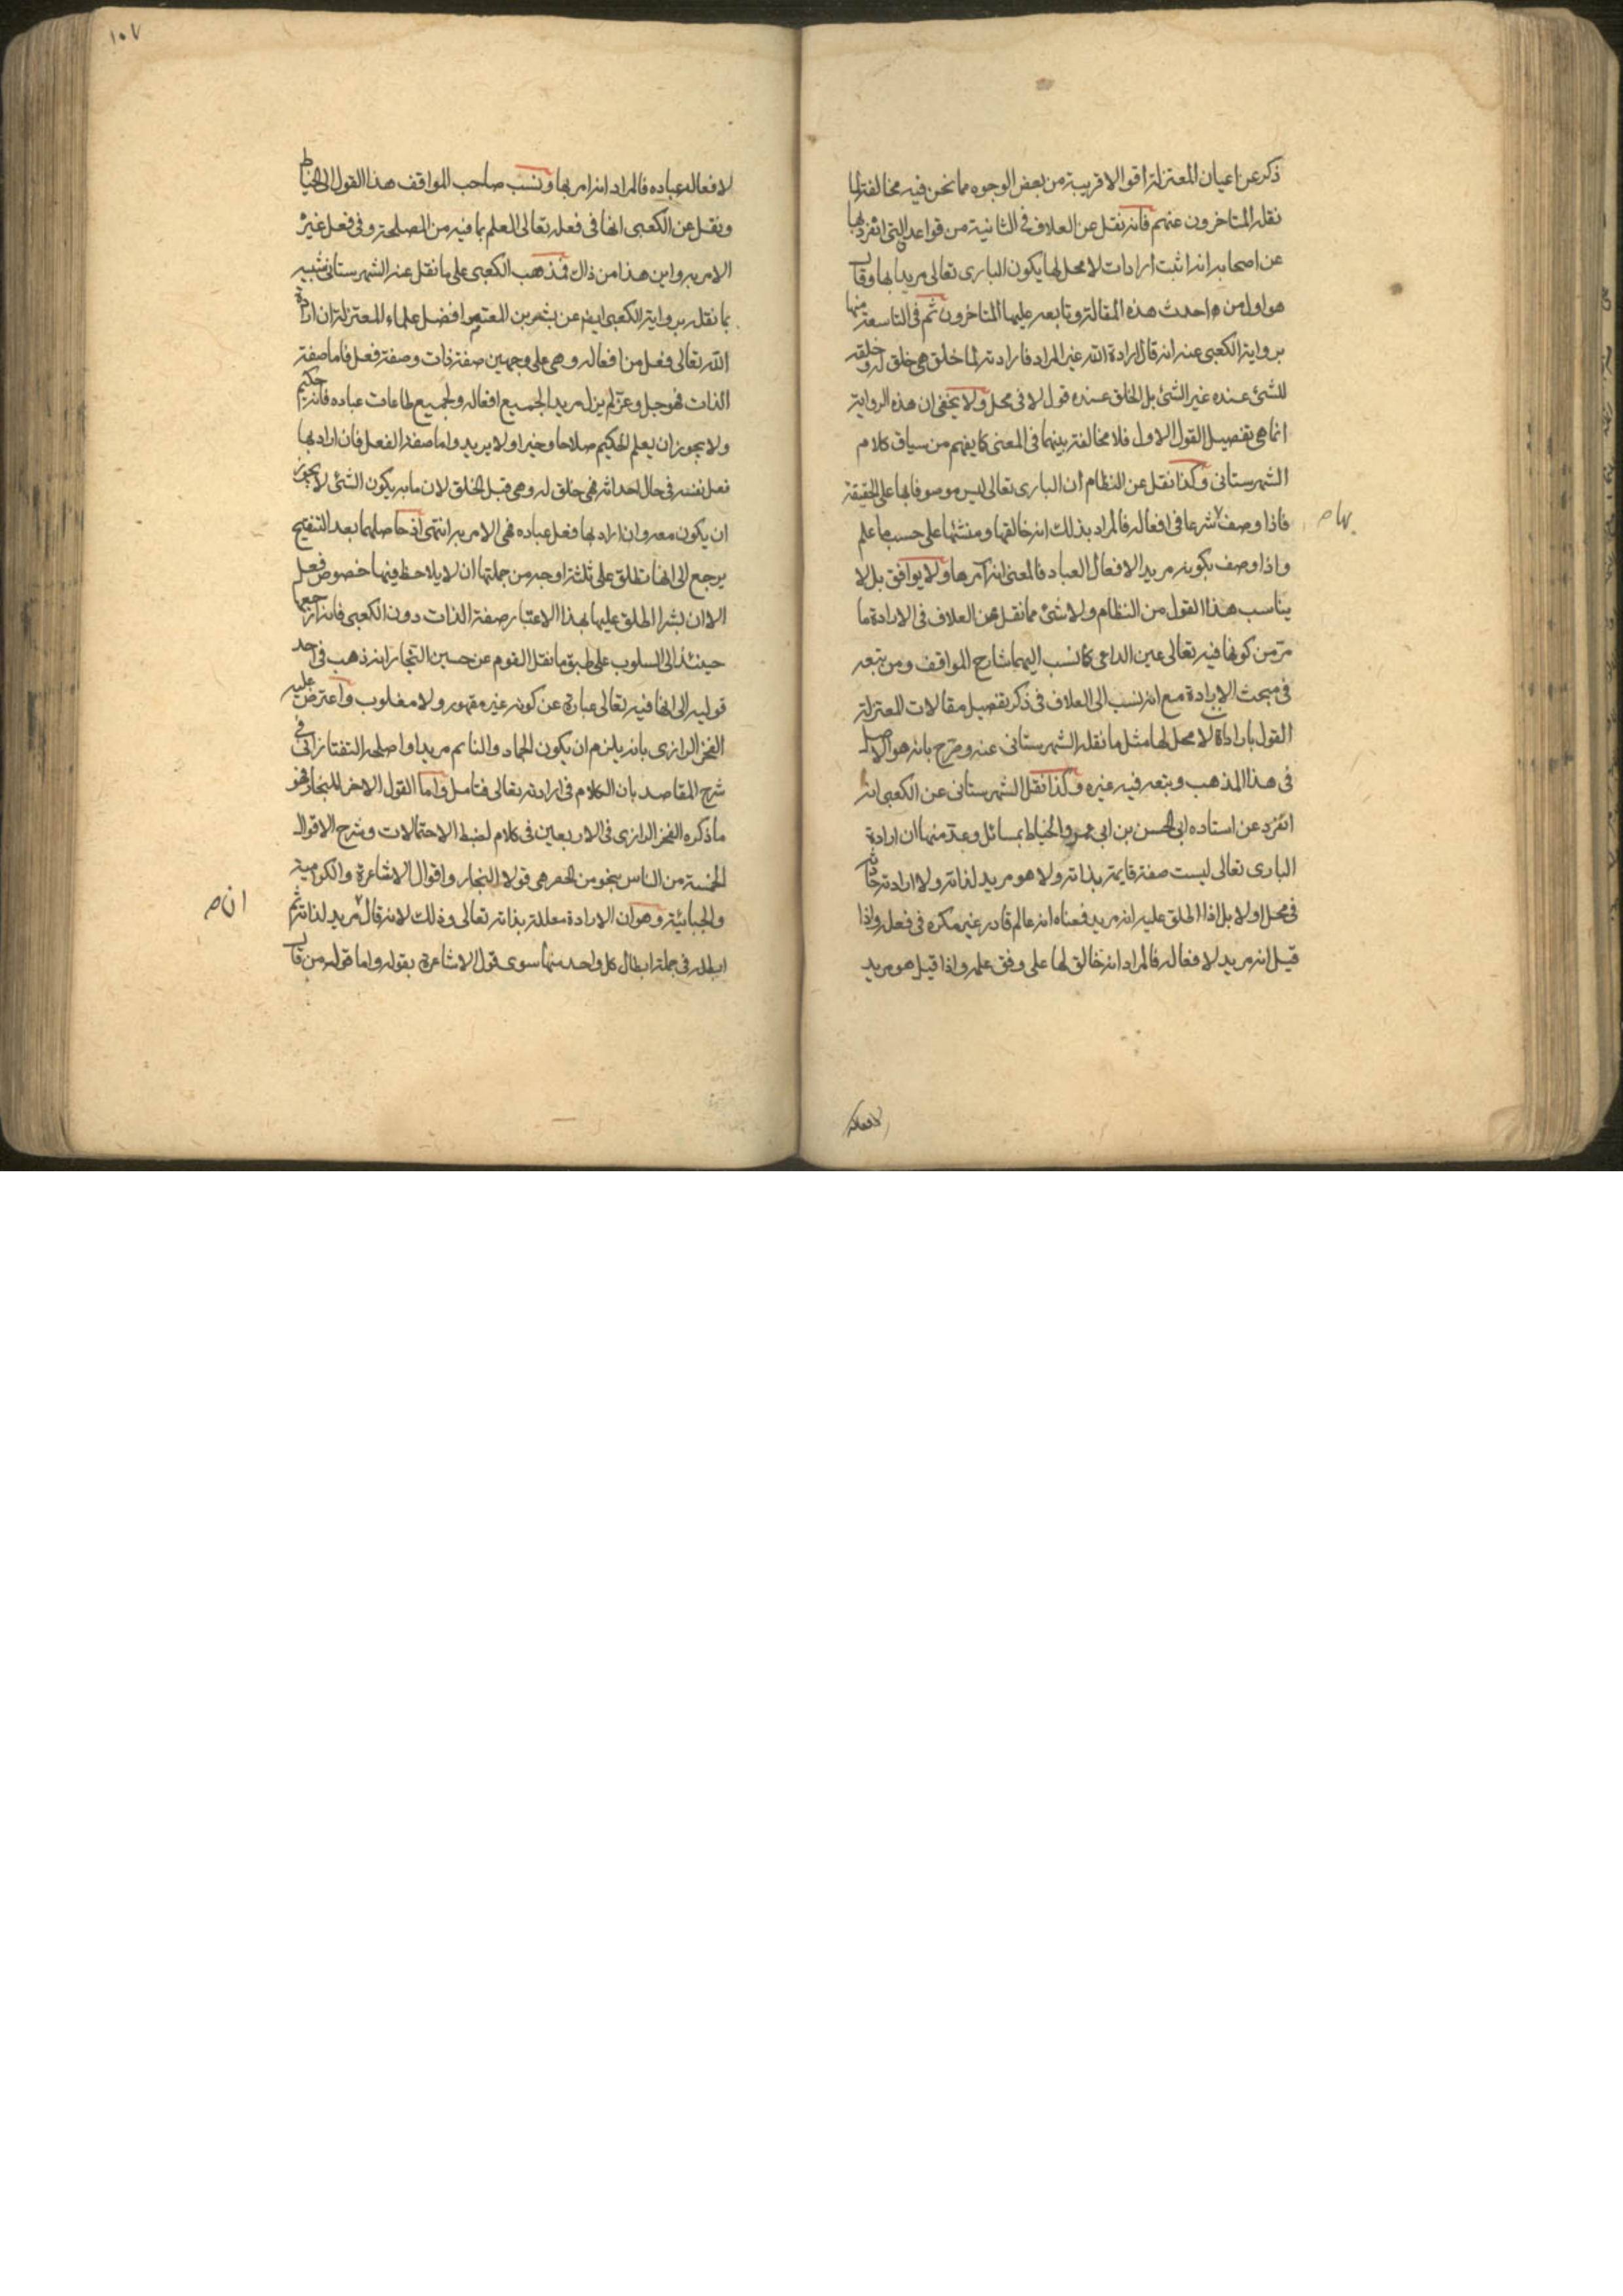 ذكر عن اعيان المعتزلة اقوالا قريبة من بعض الوجوه مما نحن فيه مخالفة لما
نقله المتاخرون عنهم فانه نقل عن العلاف في الثانية من قواعده التي انفرد بها
عن اصحابه انه اثبت ارادات لا محل لها يكون البارى تعالى مريدا بها وقال
هو اول من احدث هذه المقالة وتابعه عليها المتاخرون ثم في التاسعة منها
برواية الكعبى عنه انه قال ارادة الله غير المراد فارادته لما خلق هي خلق له وخلقه
للشئ عنده غير الشئ بل الخلق عنده قول لا في محل ولا يخفى ان هذه الرواية
انما هي تفصيل القول الاول فلا مخالفة بينهما في المعنى كما يفهم من سياق كلام
الشهرستانى وكذا نقل عن النظام ان البارى تعالى ليس موصوفا بها على الحقيقة
فاذا وصف شرعا في افعاله فالمراد بذلك انه خالقها ومنشئها على حسب ما علم
بها ص
واذا وصف بكونه مريدا لافعال العباد فالمعنى انه آمر بها ولا يوافق بل لا
يناسب هذا القول من النظام ولا شئ مما نقل عن العلاف في الارادة ما
مر من كونها فيه تعالى عين الداعى كما نسب اليهما شارح المواقف ومن تبعه
في مبحث الارادة مع انه نسب الى العلاف في ذكر تفصيل مقالات المعتزلة
القول بارادة لا محل لها مثل ما نقله الشهرستانى عنه وصرح بانه هو الاصل
في هذا المذهب وتبعه فيه غيره وكذا نقل الشهرستانى عن الكعبى انه
انفرد عن استاده ابى الحسن بن ابى عمرو الخياط بمسائل وعد منها ان ارادة
البارى تعالى ليست صفة قايمة بذاته ولا هو مريد لذاته ولا ارادته حادثة
في محل او لا بل اذا اطلق عليه انه مريد فمعناه انه عالم قادر غير مكره في فعله واذا
قيل انه مريد لافعاله فالمراد انه خالق لها على وفق علمه واذا قيل هو مريد
لافعال
١٠٧
لافعال عباده فالمراد انه امر بها ونسب صاحب المواقف هذا القول الى الخياط
ونقل عن الكعبى انها في فعله تعالى العلم بما فيه من المصلحة وفي فعل غيره
الامر به واين هذا من ذاك فمذهب الكعبى على ما نقل عنه الشهرستانى شبيه
بما نقله برواية الكعبى ايضا عن بشر بن المعتمر افضل علماء المعتزلة ان ارادة
الله تعالى فعل من افعاله وهي على وجهين صفة ذات وصفة فعل فاما صفة
الذات فهو جل وعز لم يزل مريدا لجميع افعاله ولجميع طاعات عباده فانه حكيم
ولا يجوز ان يعلم الحكيم صلاحا وخيرا ولا يريد واما صفة الفعل فان اراد بها
فعل نفسه في حال احداثه فهي خلق له وهي قبل الخلق لان ما به يكون الشئ لا يجوز
ان يكون معه وان اراد بها فعل عباده فهي الامر به انتهى اذ حاصلهما بعد التنقيح
يرجع الى انها تطلق على ثلثة اوجه من جملتها ان لا يلاحظ فيها خصوص فعل
الا ان بشرا اطلق عليها بهذا الاعتبار صفة الذات دون الكعبى فانه ارجعها
حينئذ الى السلوب على طبق ما نقل القوم عن حسين النجار انه ذهب في احد
قوليه الى انها فيه تعالى عبارة عن كونه غير مقهور ولا مغلوب واعترض عليه
الفخر الرازى بانه يلزم ان يكون الجماد والنائم مريدا واصلحه التفتازانى في
شرح المقاصد بان الكلام في ارادته تعالى فتامل واما القول الاخر للنجار فهو
ما ذكره الفخر الرازى في الاربعين في كلام لضبط الاحتمالات وشرح الاقوال
الخمسة من الناس بنحو من الحصر هي قولا النجار واقوال الاشاعرة والكرامية
والجبائية وهو ان الارادة معللة بذاته تعالى وذلك لانه قال مريد لذاته ثم
انه ص
ابطله في جملة ابطال كل واحد منها سوى قول الاشاعرة بقوله واما قوله من قال